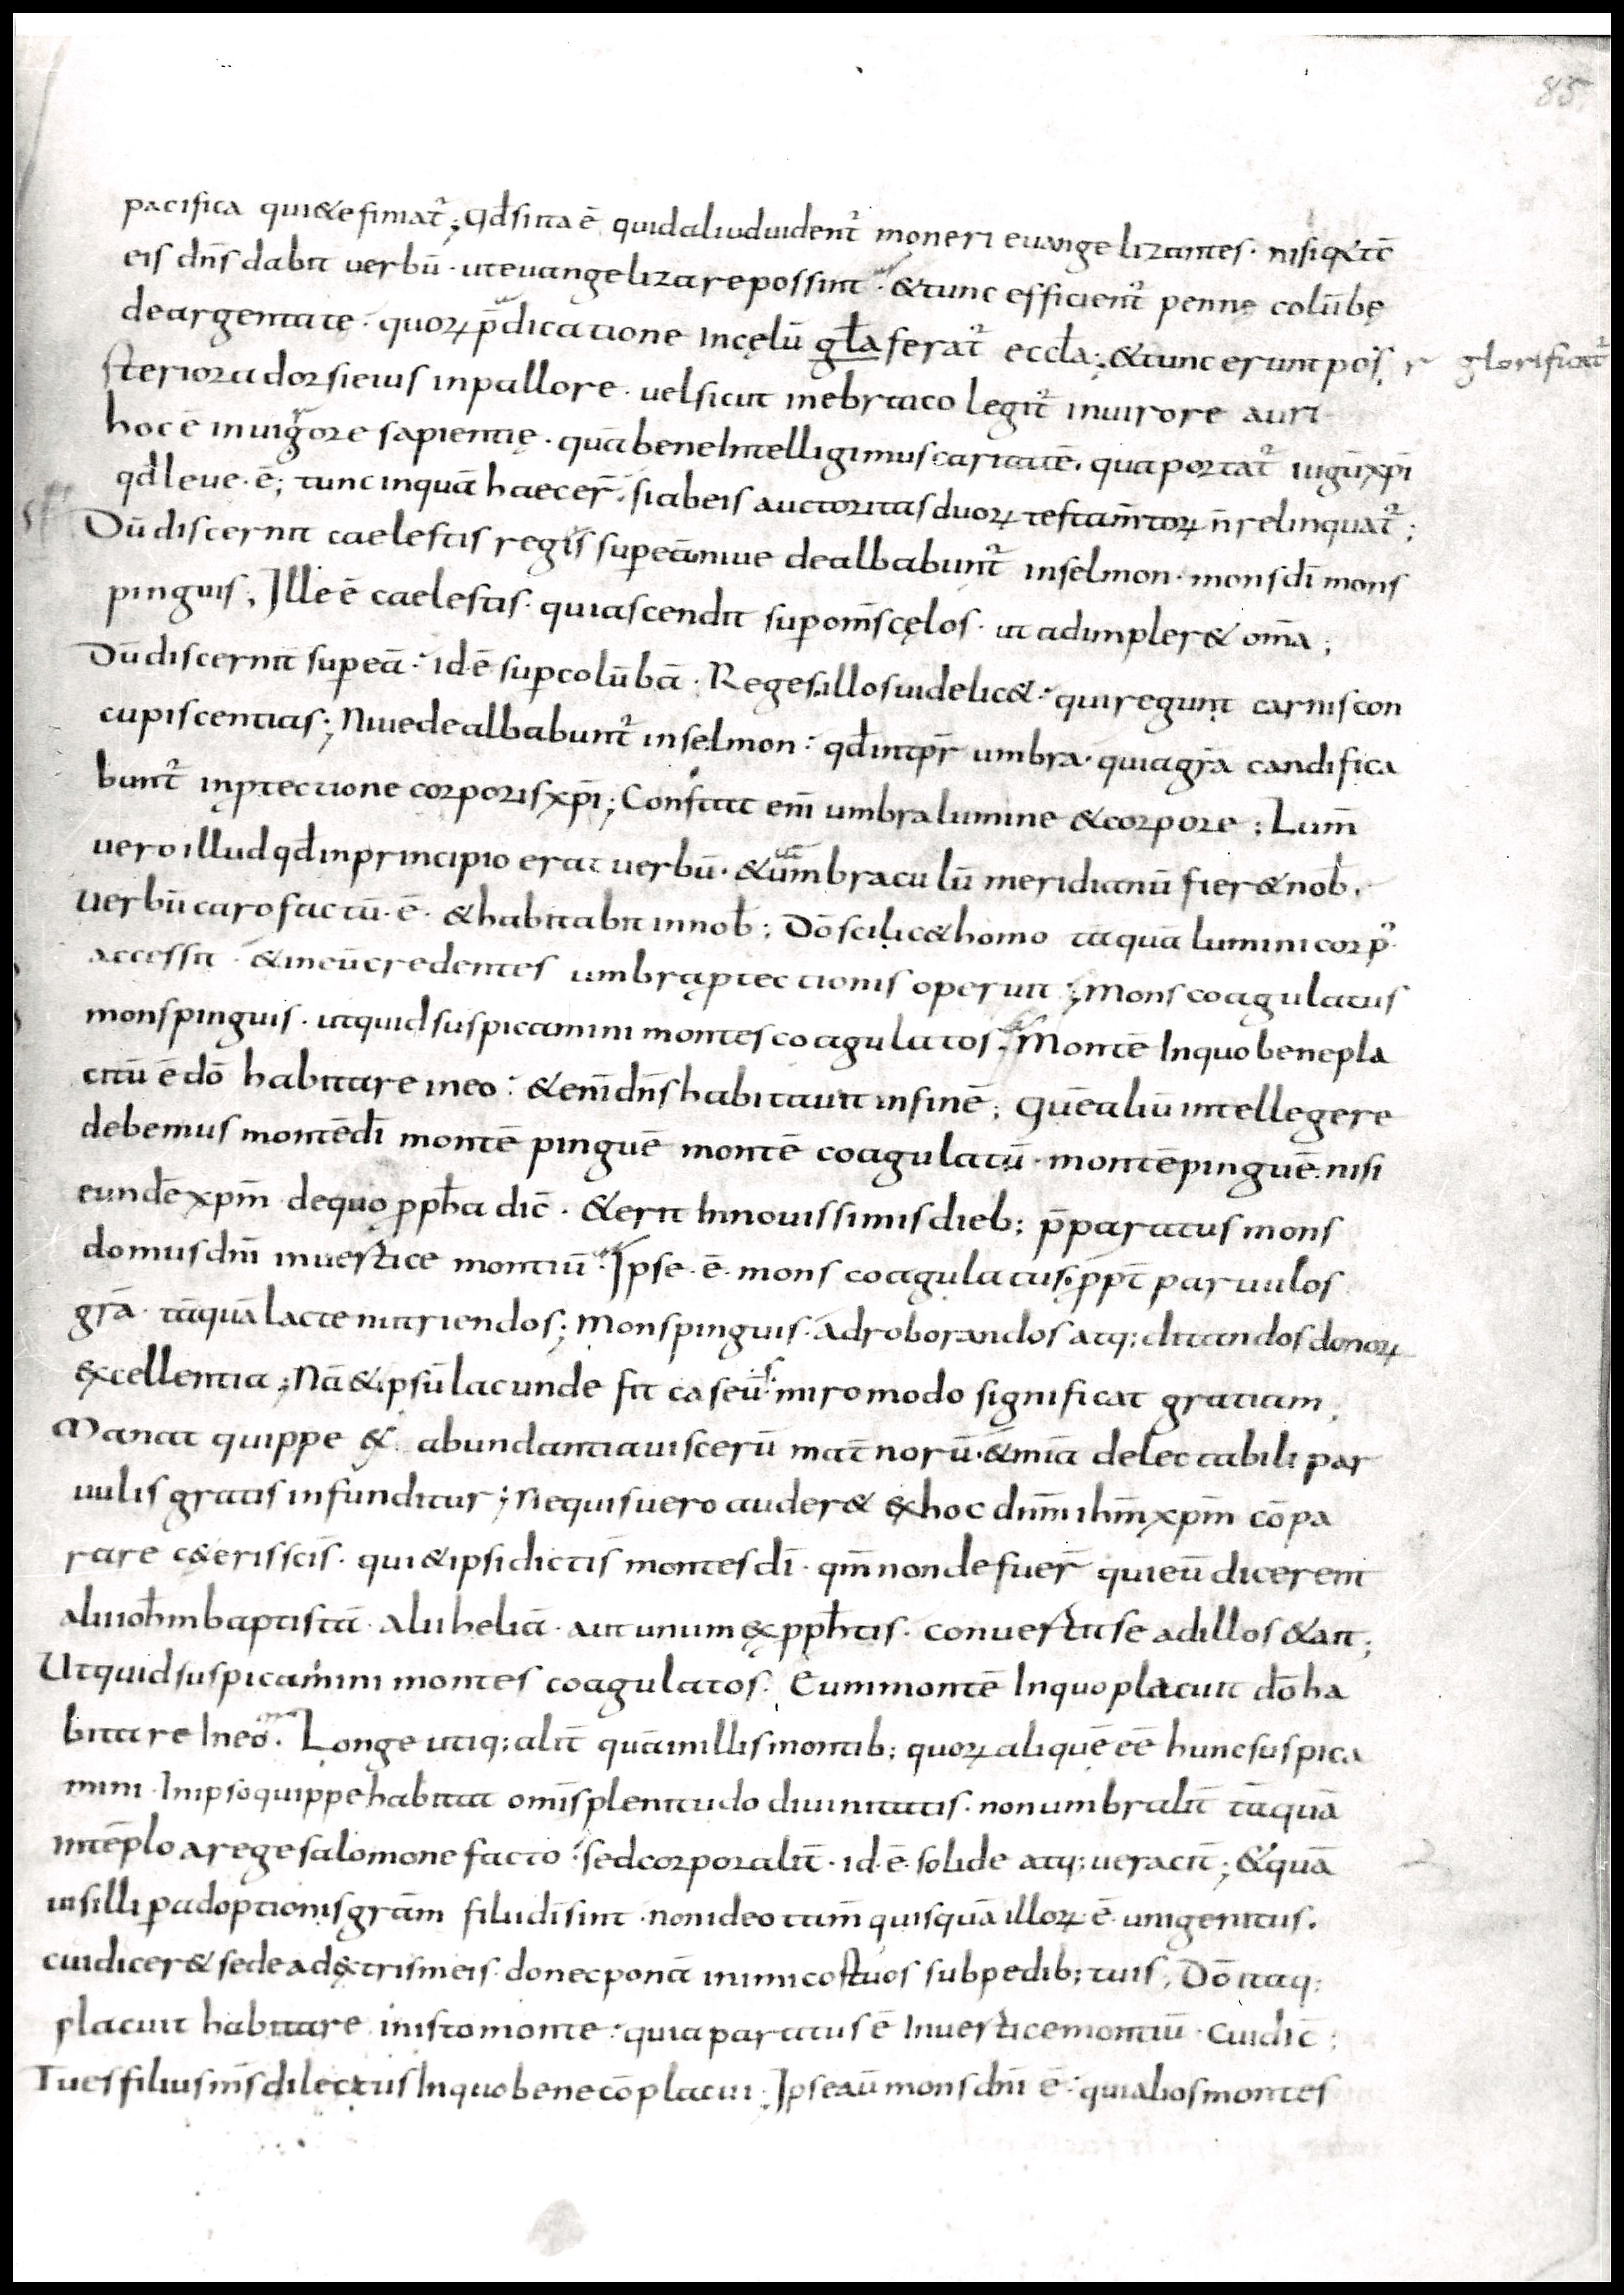 85.
pacifica qui & estimat᷑; Qd̄ si ita ē quid aliud uident᷑ moneri euangelizantes. nisi
eis dn̄s dabit uerbū. ut euangelizare possint. & tunc efficient᷑ pennę colūbę
deargentatę. quoꝝ p̄dicatione In cęlū gl̄a ferat᷑ eccl̄a; & tunc erunt pos
glorificat᷑
steriora dorsi eius in pallore. uel sicut in ebraico legit᷑ in uirore auri
hoc ē in uigore sapientię. quā bene Intelligimus caritatē. qua portat᷑ iugū xp̄i
qd̄ leue. ē; tunc inquā haec er̄. si ab eis auctoritas duoꝝ testam̄toꝝ n̄ relinquat᷑;
Dū discernit caelestis regis sup eā niue dealbabunt᷑ in selmon. mons dī mons
pinguis. Ille ē caelestis. qui ascendit sup om̄s cęlos. ut adimpler& om̄a;
Dū discernit sup eā: id. ē sup colūbā. Reges illos uidelic&: qui regunt carnis con
cupiscentias; Niue dealbabunt᷑ in selmon: qd̄ intp̄r umbra. quia gr̄a candifica
bunt᷑ in ꝓtectione corporis xp̄i; Constat em̄ umbra lumine & corpore; Lum̄
uero illud qd̄ in principio erat uerbū. & um̄braculū meridianū fier& nob̄.
uerbū caro factū. ē. & habitabit in nob̄; Dō scilic& homo tāquā lumini corp᷑
accessit. & in eū credentes umbra ꝓtectionis operuit; Mons coagulatus
mons pinguis. ut quid suspicamini montes coagulatos. Montē In quo bene pla
citū ē dō habitare in eo: & enī dn̄s habitauit in finē; Quē aliū intellegere
debemus montē dī montē pinguē montē coagulatū. montē pinguē. nisi
eundē xp̄m. de quo ꝓph̄a dic̄. & erit In nouissimis dieb; p̄paratus mons
domus dn̄i in uertice montiū. Ipse. ē. mons coagulatus. ꝓpt̄ paruulos
gr̄a. tāquā lacte nutriendos; Mons pinguis. ad roborandos atq; ditandos donoꝝ
excellentia; Nā & ipsū lac unde fit caseus: miro modo significat gratiam.
Manat quippe ex abundantia uiscerū mat̄norū. & mīa delectabili par
uulis gratis infunditur; Ne quis uero auder& ex hoc dn̄m ihm̄ xp̄m cōpa
rare c&eris sc̄is. qui & ipsi dicti s̄ montes dī. qm̄ non defuer̄ qui eū dicerent
alii ioh̄m baptistā. alii heliā. aut unum ex ꝓph̄tis. conuertit se ad illos & ait;
Ut quid suspicamini montes coagulatos. Eum montē In quo placuit dō ha
bitare In eo. Longe utiq; alit̄ quā in illis montib; quoꝝ aliquē eē hunc suspica
mini. In ipso quippe habitat om̄is plenitudo diuinitatis. non umbralit̄ tāquā
In tēplo a rege salomone facto: sed corporalit̄. id. ē. solide atq; ueracit̄; & quā
uis illi p adoptionis gr̄am filii dī sint. non ideo tam̄ quisquā illoꝝ ē. unigenitus.
cui dicer& sede ad dextris meis. donec ponā inimicos tuos sub pedib; tuis. Dō itaq;
placuit habitare in isto monte: quia paratus ē In uertice montiū. Cui dic̄;
Tu es filius m̄s dilectus In quo bene cōplacui; Ipse aū mons dn̄i ē: qui alios montes